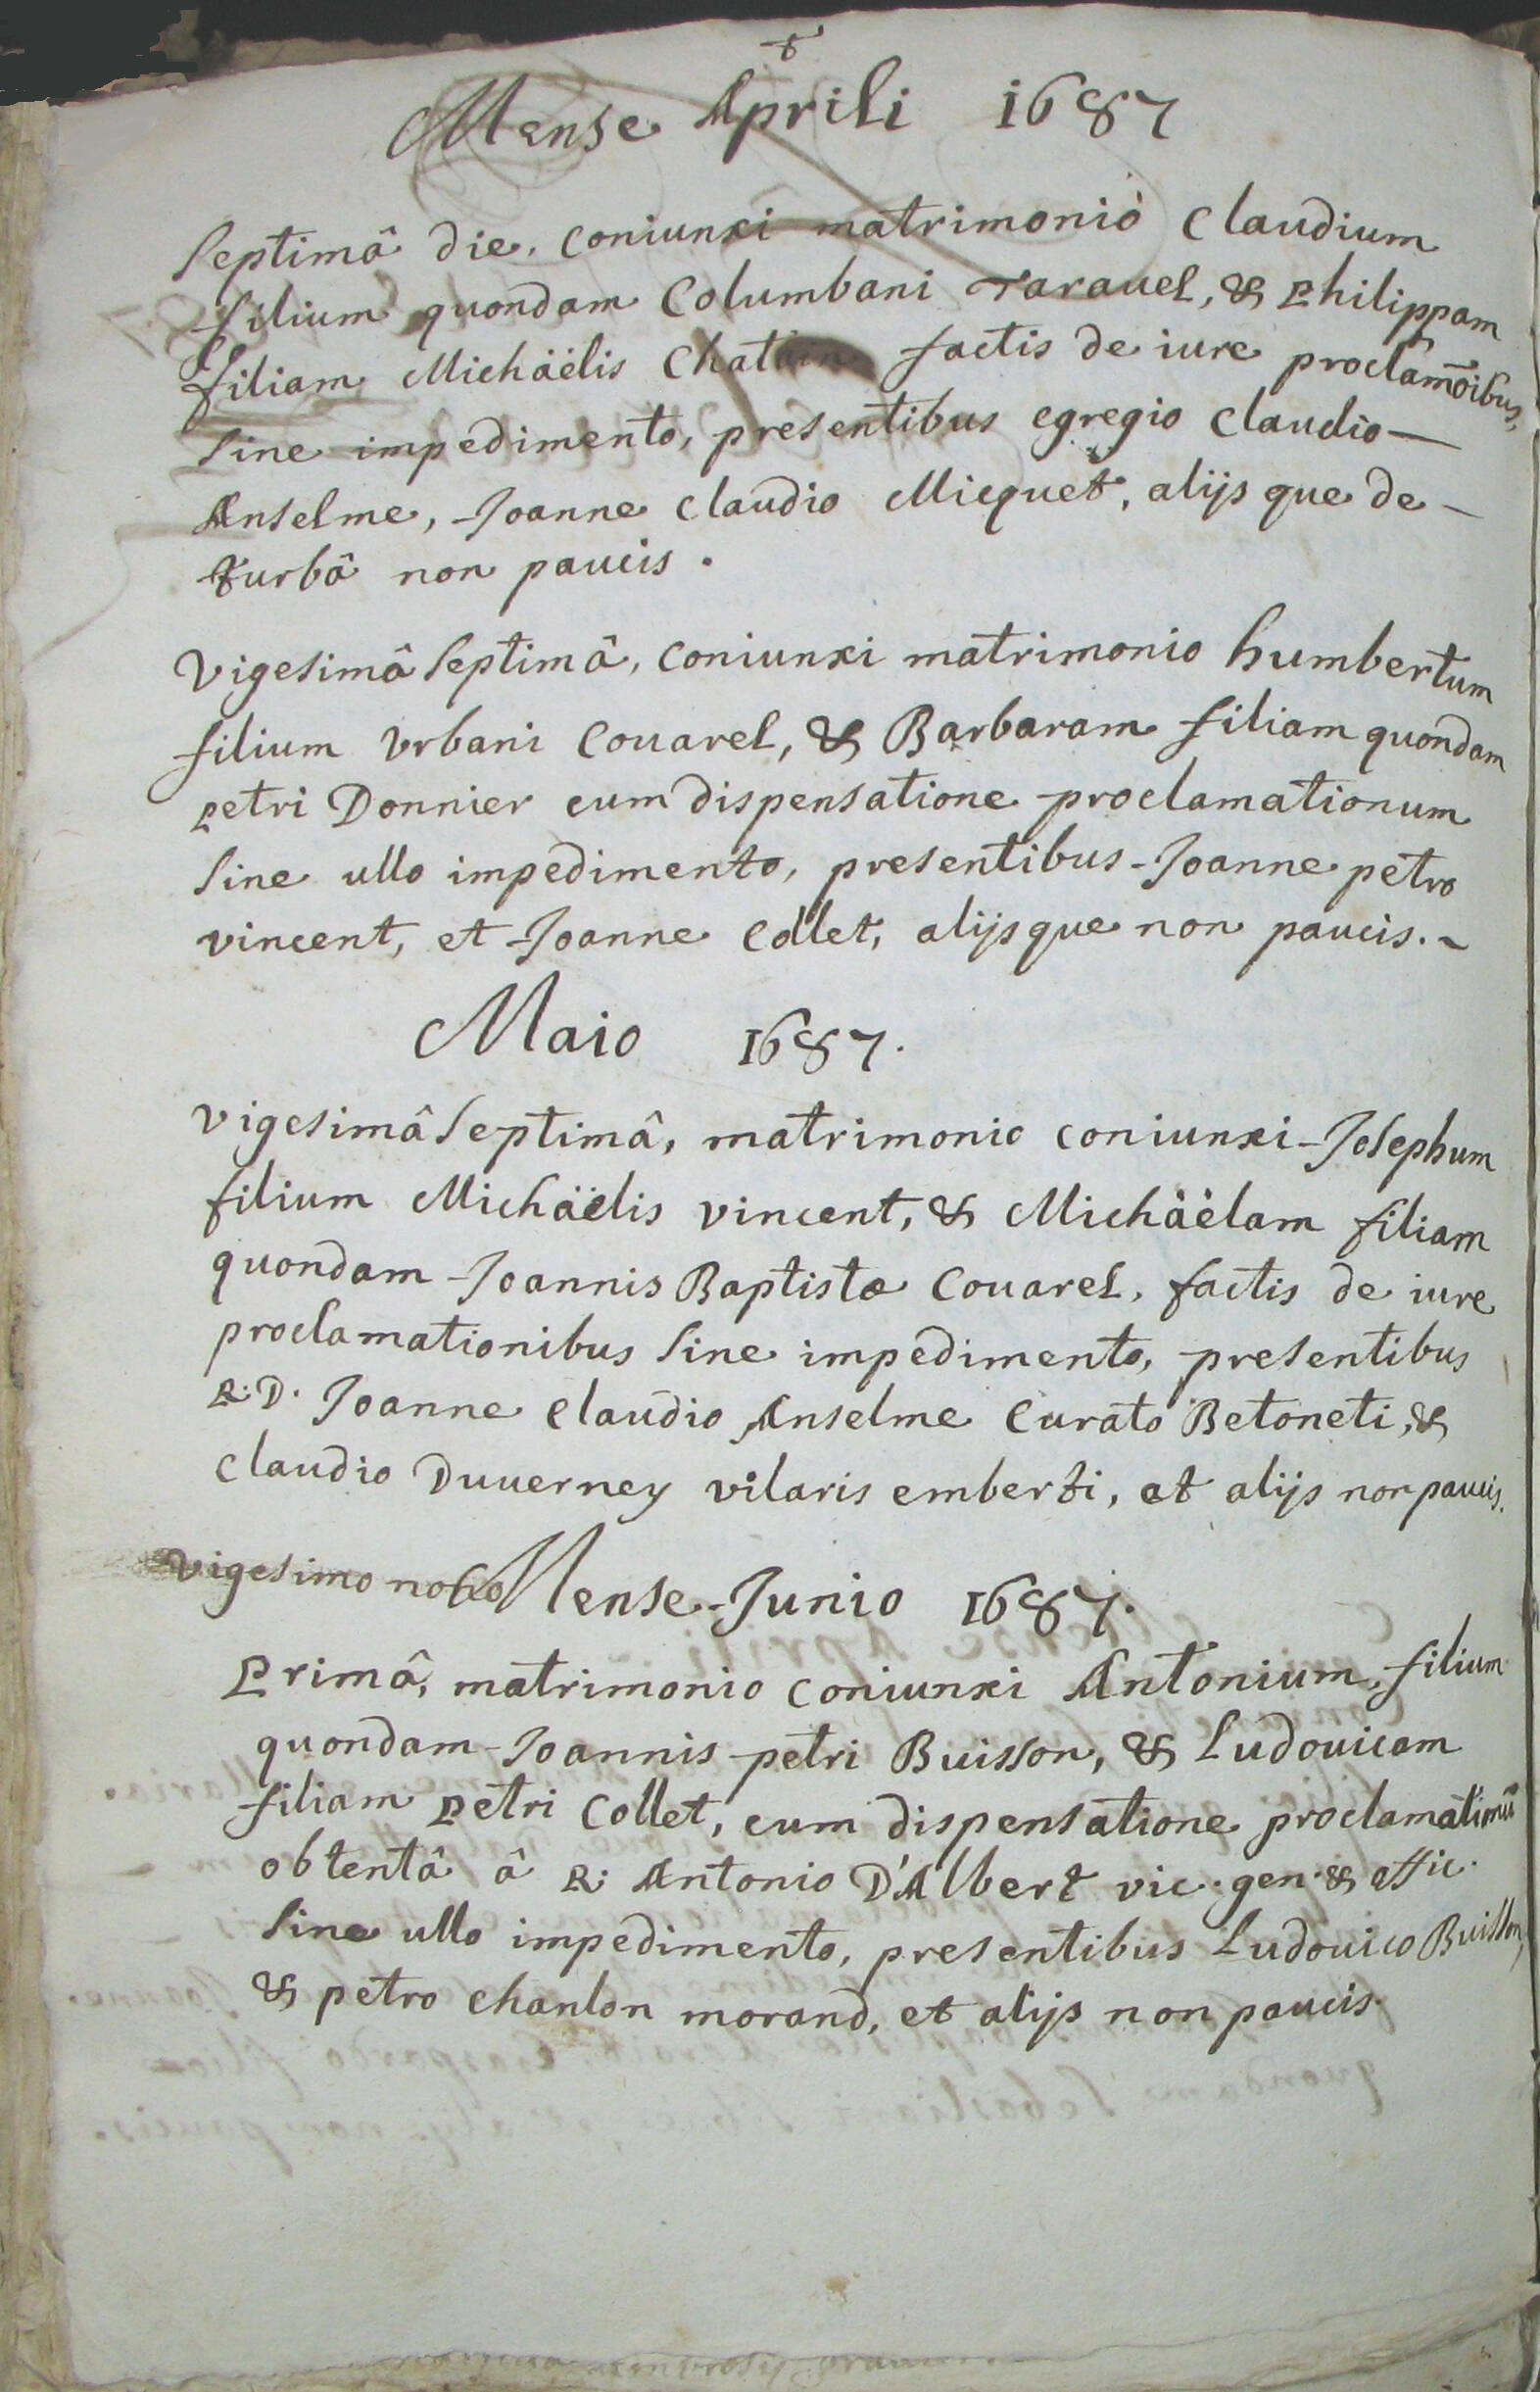 Mense Aprili 1687
Septimâ die, coniunxi matrimonio Claudium
filium quondam Columbani Tarauel, & Philippam
filiam Michäelis factis de iure proclamõibus,
sine impedimento, presentibus egregio Claudio —
Anselme, Joanne Claudio Micquet, alijs que de —
turbâ non paucis.
Vigesimâ septimâ, coniunxi matrimonio humbertum
filium Vrbani Couarel, & Barbaram filiam quondam
petri Donnier cum dispensatione proclamationum
sine ullo impedimento, presentibus Joanne petro
vincent, et Joanne Collet, alijsque non paucis. ~
Maio 1687.
vigesimâ septimâ, matrimonio coniunxi Josephum
filium Michäelis vincent, & Michäelam filiam
quondam Joannis Baptistæ Couarel, factis de iure
proclamationibus sine impedimento, presentibus
R. D. Joanne Claudio Anselme Curato Betoneti, &
Claudio Duuerney vilaris emberti, et alijs non paucis.
vigesimo Mense Junio 1687.
Primâ, matrimonio coniunxi Antonium, filium
quondam Joannis petri Buisson, & Ludouicam
filiam petri Collet, cum dispensatione proclamationũ
obtentâ â R. Antonio D'Albert vic. gen. & offic.
sine ullo impedimento, presentibus Ludouico Buisson,
& petro morand, et alijs non paucis.